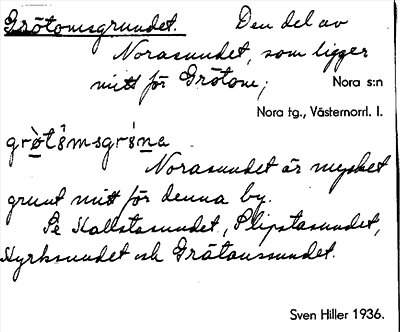 Grötomsgrundet. Den del av
Norasundet, som ligger
mitt för Grötom;
Nora s:n
Nora tg., Västernorrl. l.
Norasundet är mycket
grunt mitt för denna by.
Se Hallstasundet, Slipstasundet,
Kyrksundet och Grätaussundet.
Sven Hiller 1936.